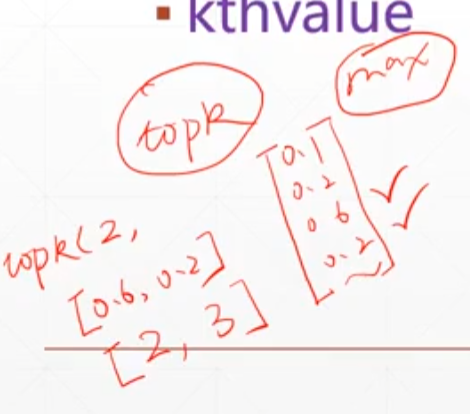 ▪ kthvalue
max
topk
[0.1
0.2
0.6
0.2]
topk(2,
[0.6, 0.2]
[2, 3]